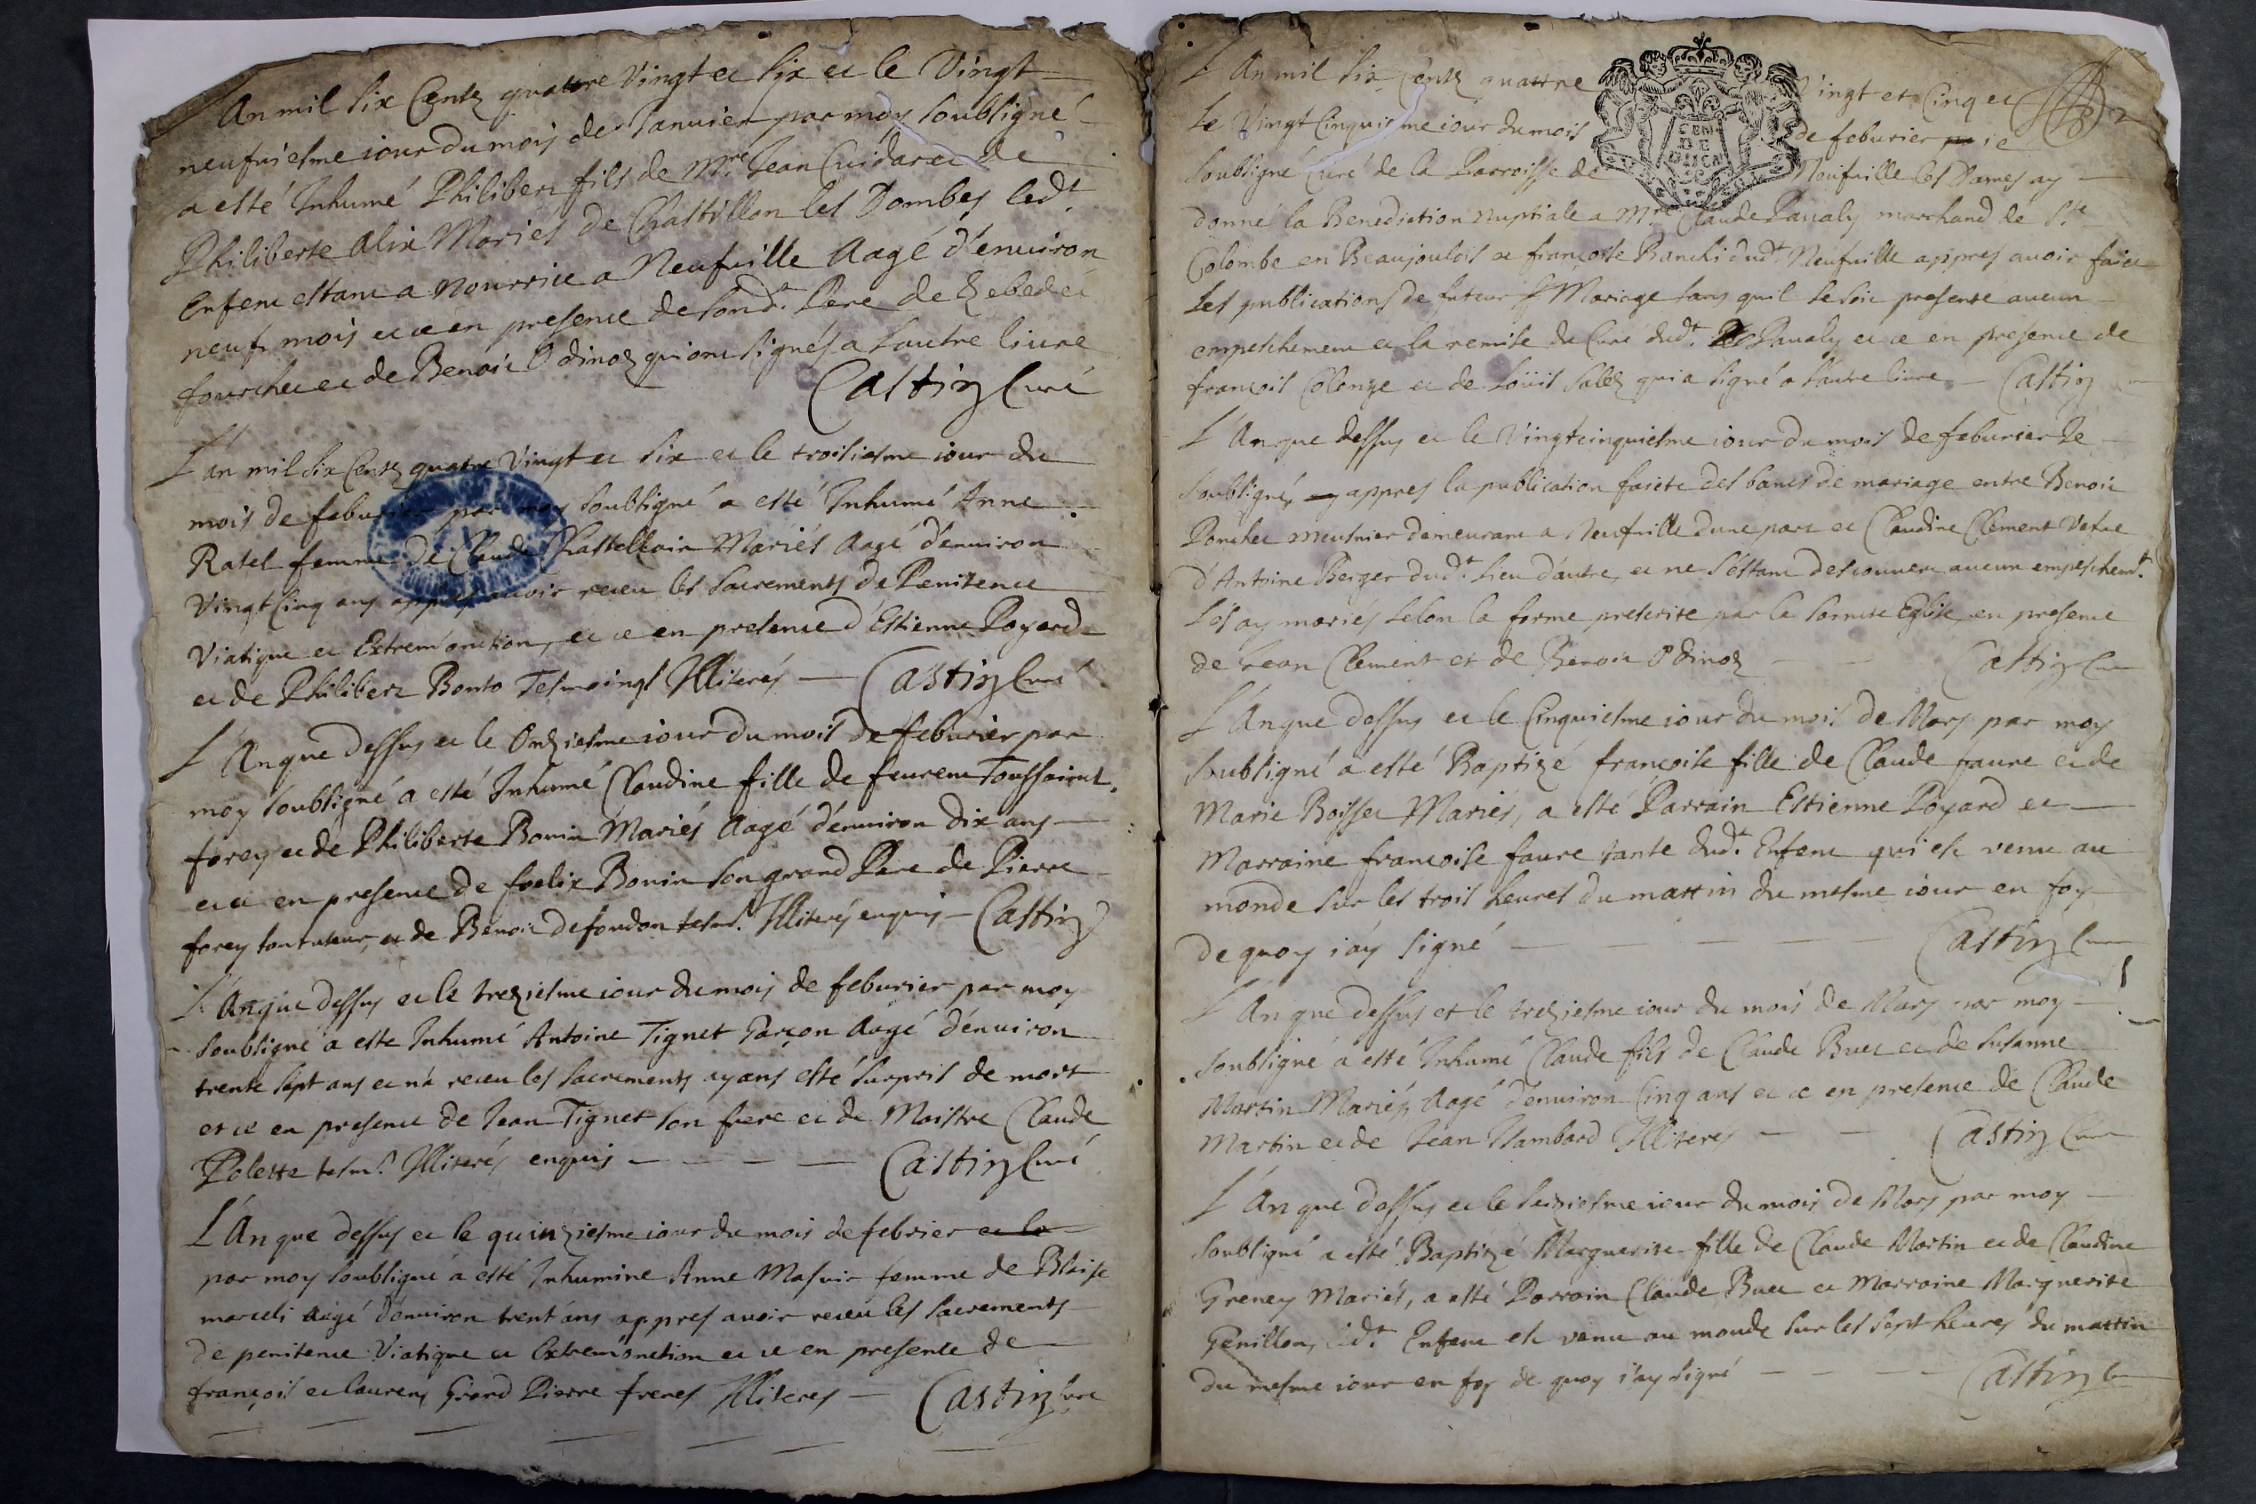 L'An mil six Centz quatre Vingt et six et le Vingt
neufuiesme iour du mois de Ianuier par moy soubsigné
a esté Inhumé Philibert fils de Mre Iean Cuidaret de
Philiberte Alix Mariés de Chastillon les Dombes led.t
Enfent estant a Nourrice a Neufuille Aagé d'enuiron
neuf mois et ce en presence de sond.t Pere de Zebedeé
fourchet et de Benoit Odinoz qui ont signés a lautre liure
Castin Curé
L'an mil six Centz quatre Vingt et six et le troisiesme iour du
mois de feburier par moy soubsigné a esté Inhumé Anne
Ratel femme De Claude Chastellain Mariés Aagé d'enuiron
Vingt Cinq ans appres auoir receu les sacrements De Penitence
Viatique et Extrem'onction, et ce en presence d'Estienne Poyard
et de Philibert Bonto Tesmoingt Illiterés — Castin Curé
L'An que dessus et le Onziesme iour du mois de feburier par
moy soubsigné a esté Inhumé Claudine fille de feurent Toussainct
forey et de Philiberte Bouin Mariés Aagé d'enuiron dix ans
et ce en presence de foelix Bouin son grand Pere de Pierre
forey son tuteur, et de Benoit defondon tesm.s Illiterés enquis — Castin
L'An que dessus et le treziesme iour du mois de feburier par moy
soubsigné a este Inhumé Antoine Tignet Garçon Aagé d'enuiron
trente sept ans et n'a receu les sacrements ayans esté surpris de mort
et ce en presence de Iean Tignet son frere et de Maistre Claude
Polette tesm.s Illiterés enquis — — — — Castin Curé
L'An que dessus et le quinziesme iour du mois de febrier et le
par moy soubsigné a esté Inhumine Anne Masuir femme de Blaise
marceli Aagé d'enuiron trent'ans appres auoir receu les sacrements
de penitence Viatique et Extrem'onction et ce en presente de
françois et laurens Grand Pierre freres Illiteres — Castin Cure
L'An mil six Centz quattre Vingt et Cinq et 2
le Vingt Cinquiesme iour du mois de feburier ie
soubsigné Curé de la Parroisse de Neufuille les Dames ay
donné la Benediction nuptiale a Mre Claude Pavaly marchand de Ste
Colombe en Beaujoulois et françoise Banchi dud.t Neufuille appres auoir faict
Les publications de futeur Mariage sans quil se soit presente aucun
empeschement et la remise du Curé dud.t Pavaly et ce en presence de
françois Colonge et de Loüis Sallz qui a signé a l'autre liure — Castin
L'An que dessus et le Vingtcinquiesme iour du mois de feburier Ie
soubsigné, appres la publication faicte des bancs de mariage entre Benoit
Ponchet meusnier demeurant a Neufuille dune part et Claudine Clement Vefue
d'Antoine Berger dud.t Lieu d'autre, et ne s'estant descouuert aucun empeschem.t
Les ay mariés selon la forme prescrite par la saincte Eglise en presence
de Iean Clement et de Benoit Odinoz — — Castin Cure
L'An que dessus et le Cinquiesme iour du mois de Mars par moy
soubsigné a esté Baptizé françoise fille de Claude faure et de
Marie Boisset Mariés, a esté Parrain Estienne Poyard et
Marraine françoise faure tante dud.t Enfent qui est venu au
monde sur les trois heures du mattin du mesme iour en foy
de quoy i'ay signé — — — — — Castin Cure
L'An que dessus et le treziesme iour du mois de Mars par moy
soubsigné a esté Inhumé Claude fils de Claude Buet et de Susanne
Martin Mariés Aagé d'enuiron Cinq ans et ce en presence de Claude
Martin et de Iean Iambard Illiterés — — Castin Cure
L'An que dessus et le seiziesme iour du mois de Mars par moy
soubsigné a esté Baptizé Marguerite fille de Claude Martin et de Claudine
Greney Mariés, a esté Parrain Claude Buet et Marraine Marguerite
Genillon, led.t Enfent est venu au monde sur les sept heures du mattin
du mesme iour en foy de quoy i'ay signé — — — — Castin Cure